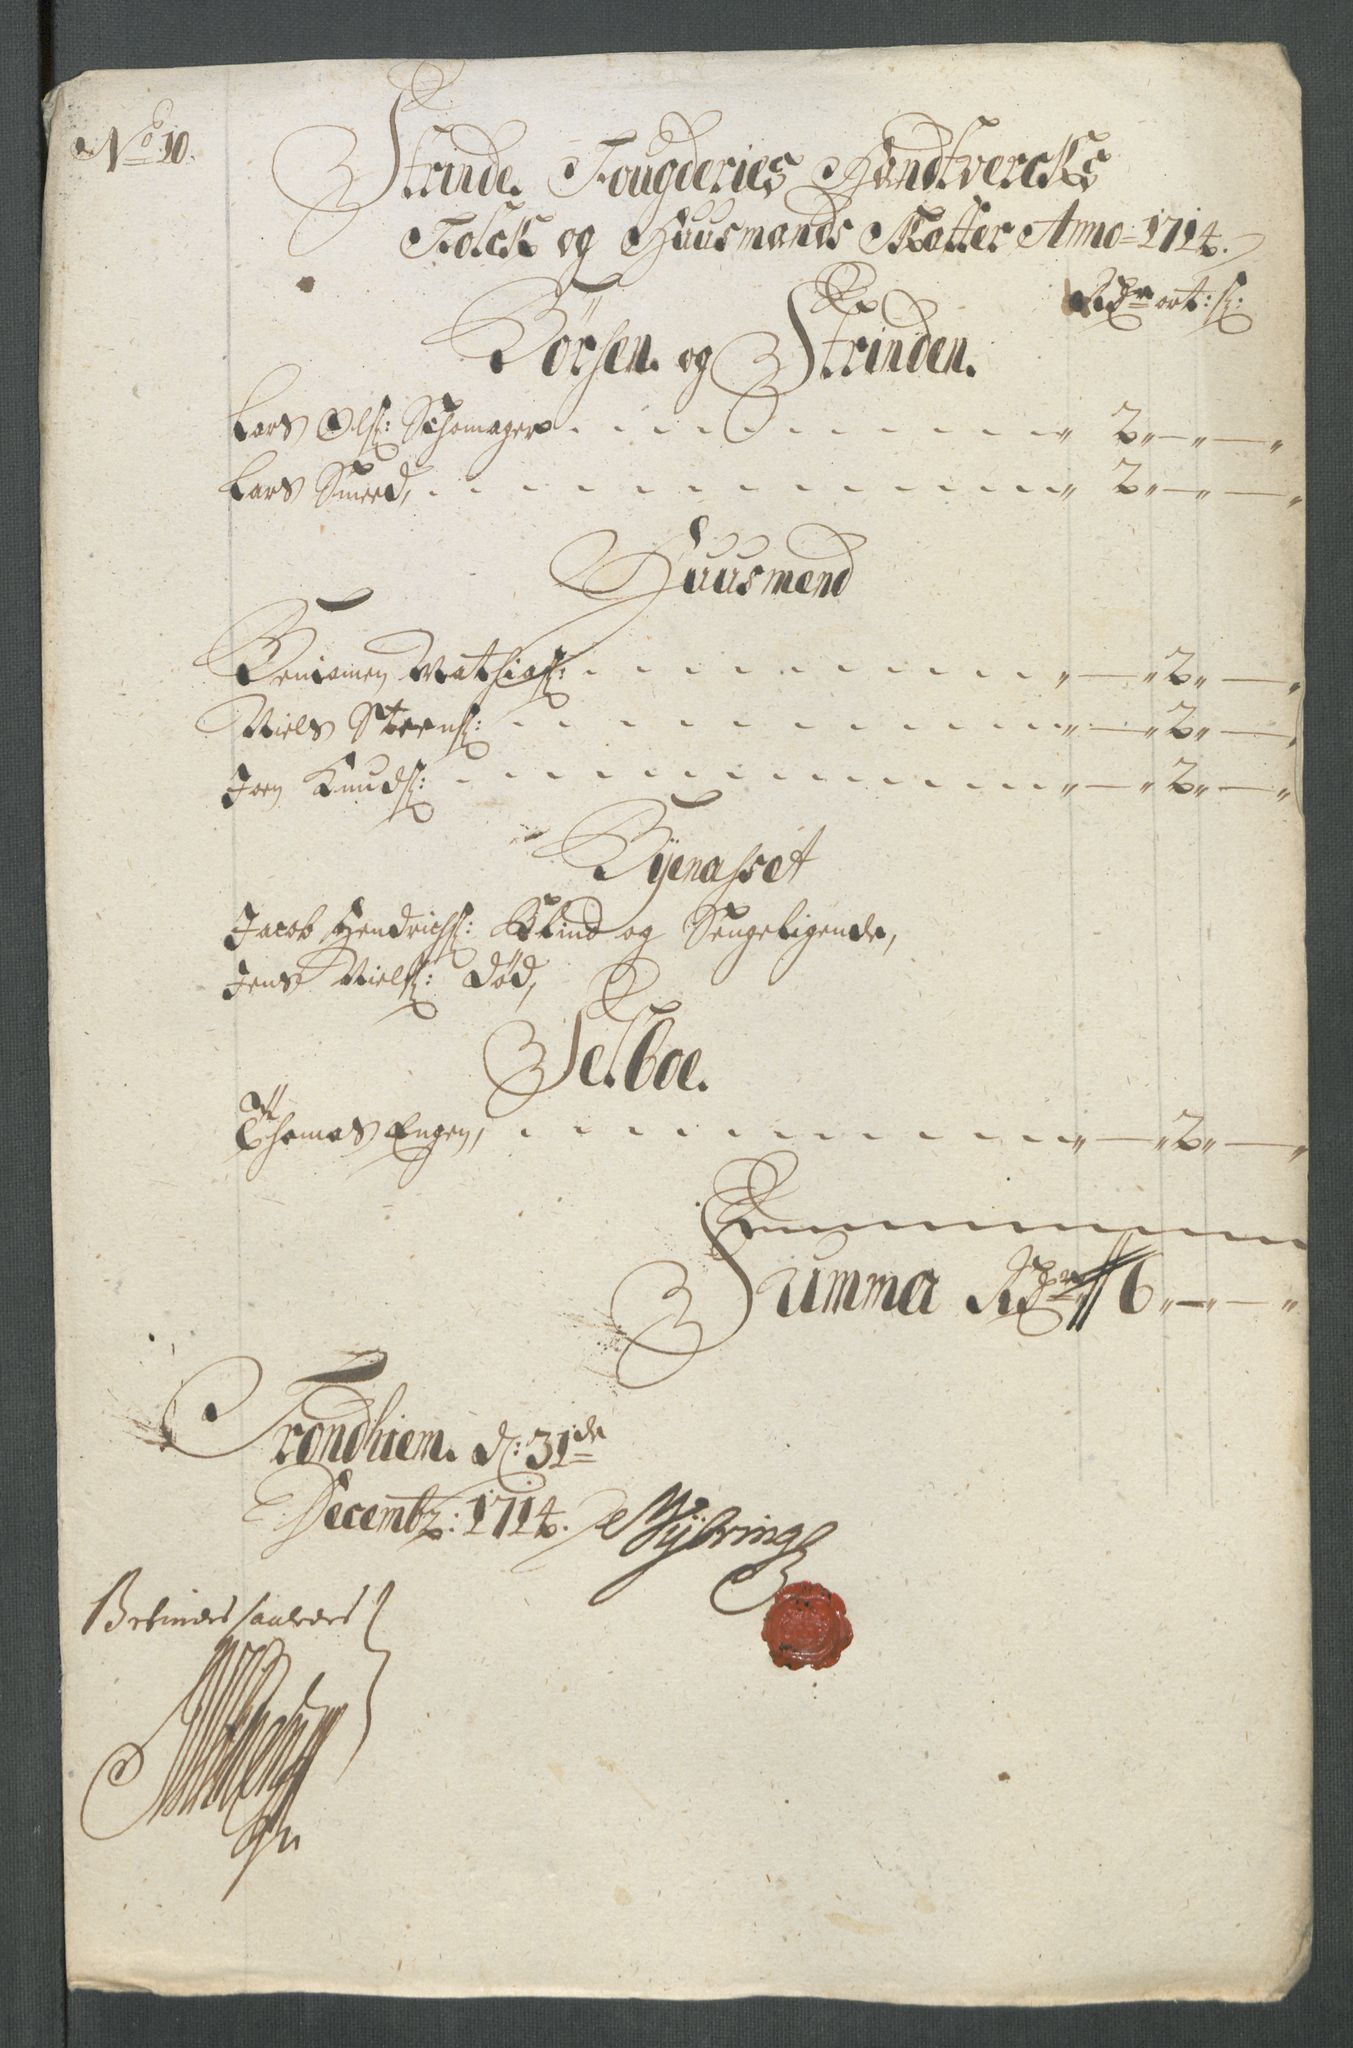 No 10.
Strinde Fougderies Handtvercks
Folck og Huusmands Skatter Anno 1714.
Rdr ort: s:
Børsen og Strinden.
Lars Ols: Schomager " 2 " — " — "
Lars Smed, " 2 " — " — "
Huusmend
Beniamen Mathias: " — " 2 " — "
Niels Steens: " — " 2 " — "
Joen Knuds: " — " 2 " — "
Byenesset
Jacob Hendrichs: Blind og Sengeligende,
Jens Niels: død,
Selboe.
Thomas Engen, " — " 2 " — "
Summa Rdr 6 " — " — "
Trondhiem. d: 31de
Decembr: 1714.